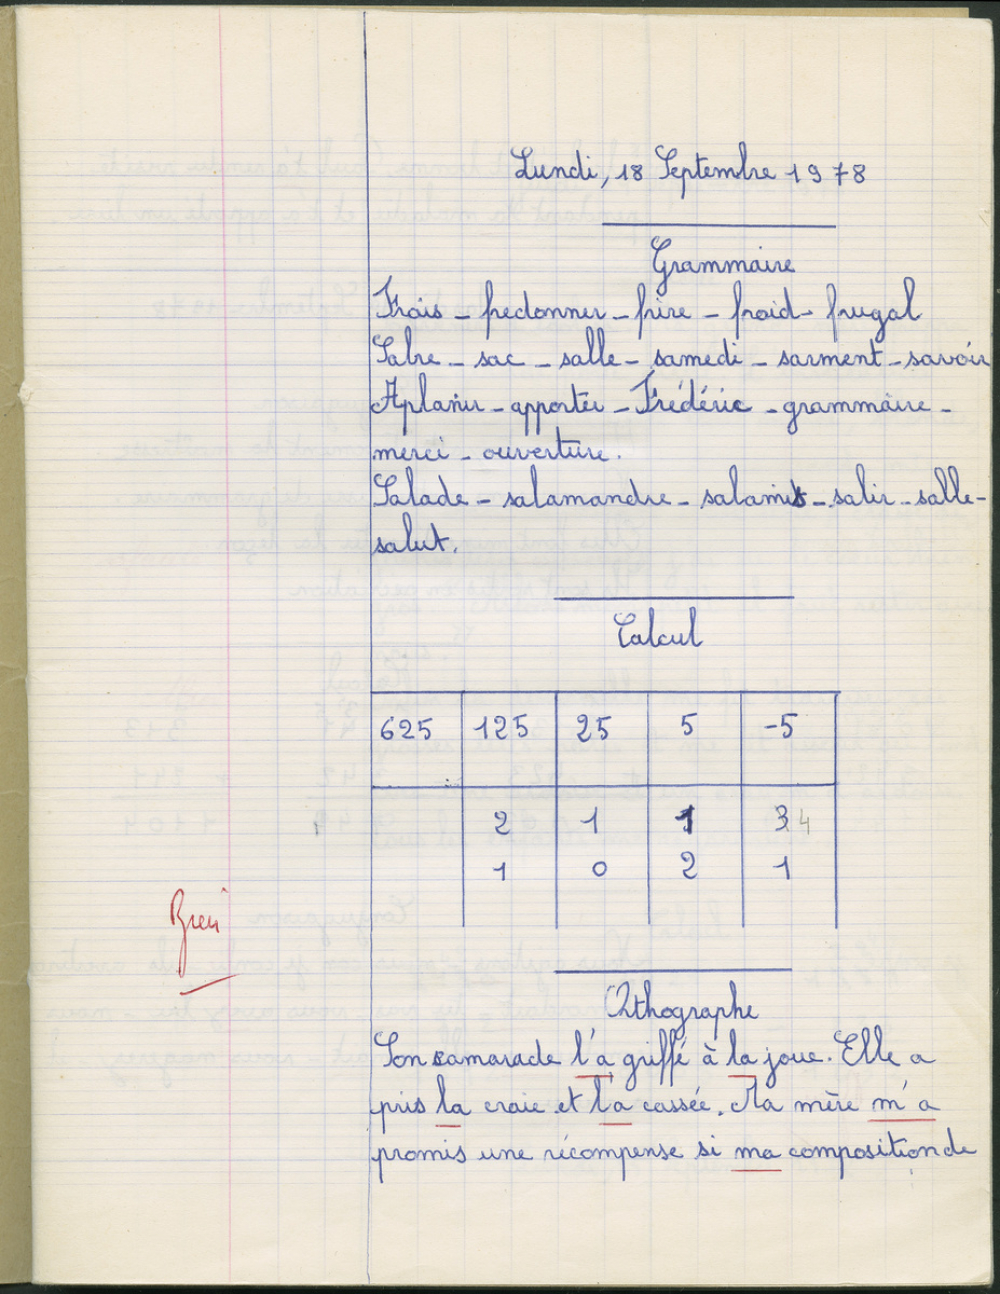 Lundi, 18 Septembre 1978
Grammaire
Frais - fredonner - frire - froid - frugal
Sabre - sac - salle - samedi - sarment - savoir
Aplanir - apporter - Frédéric - grammaire -
merci - ouverture.
Salade - salamandre - salami - salir - salle -
salut.
Calcul
625 125 25 5 -5
2 1 1 3 4
1 0 2 1
Bien
Orthographe
Son camarade l'a griffé à la joue. Elle a
pris la craie et l'a cassée. Ma mère m'a
promis une récompense si ma composition de